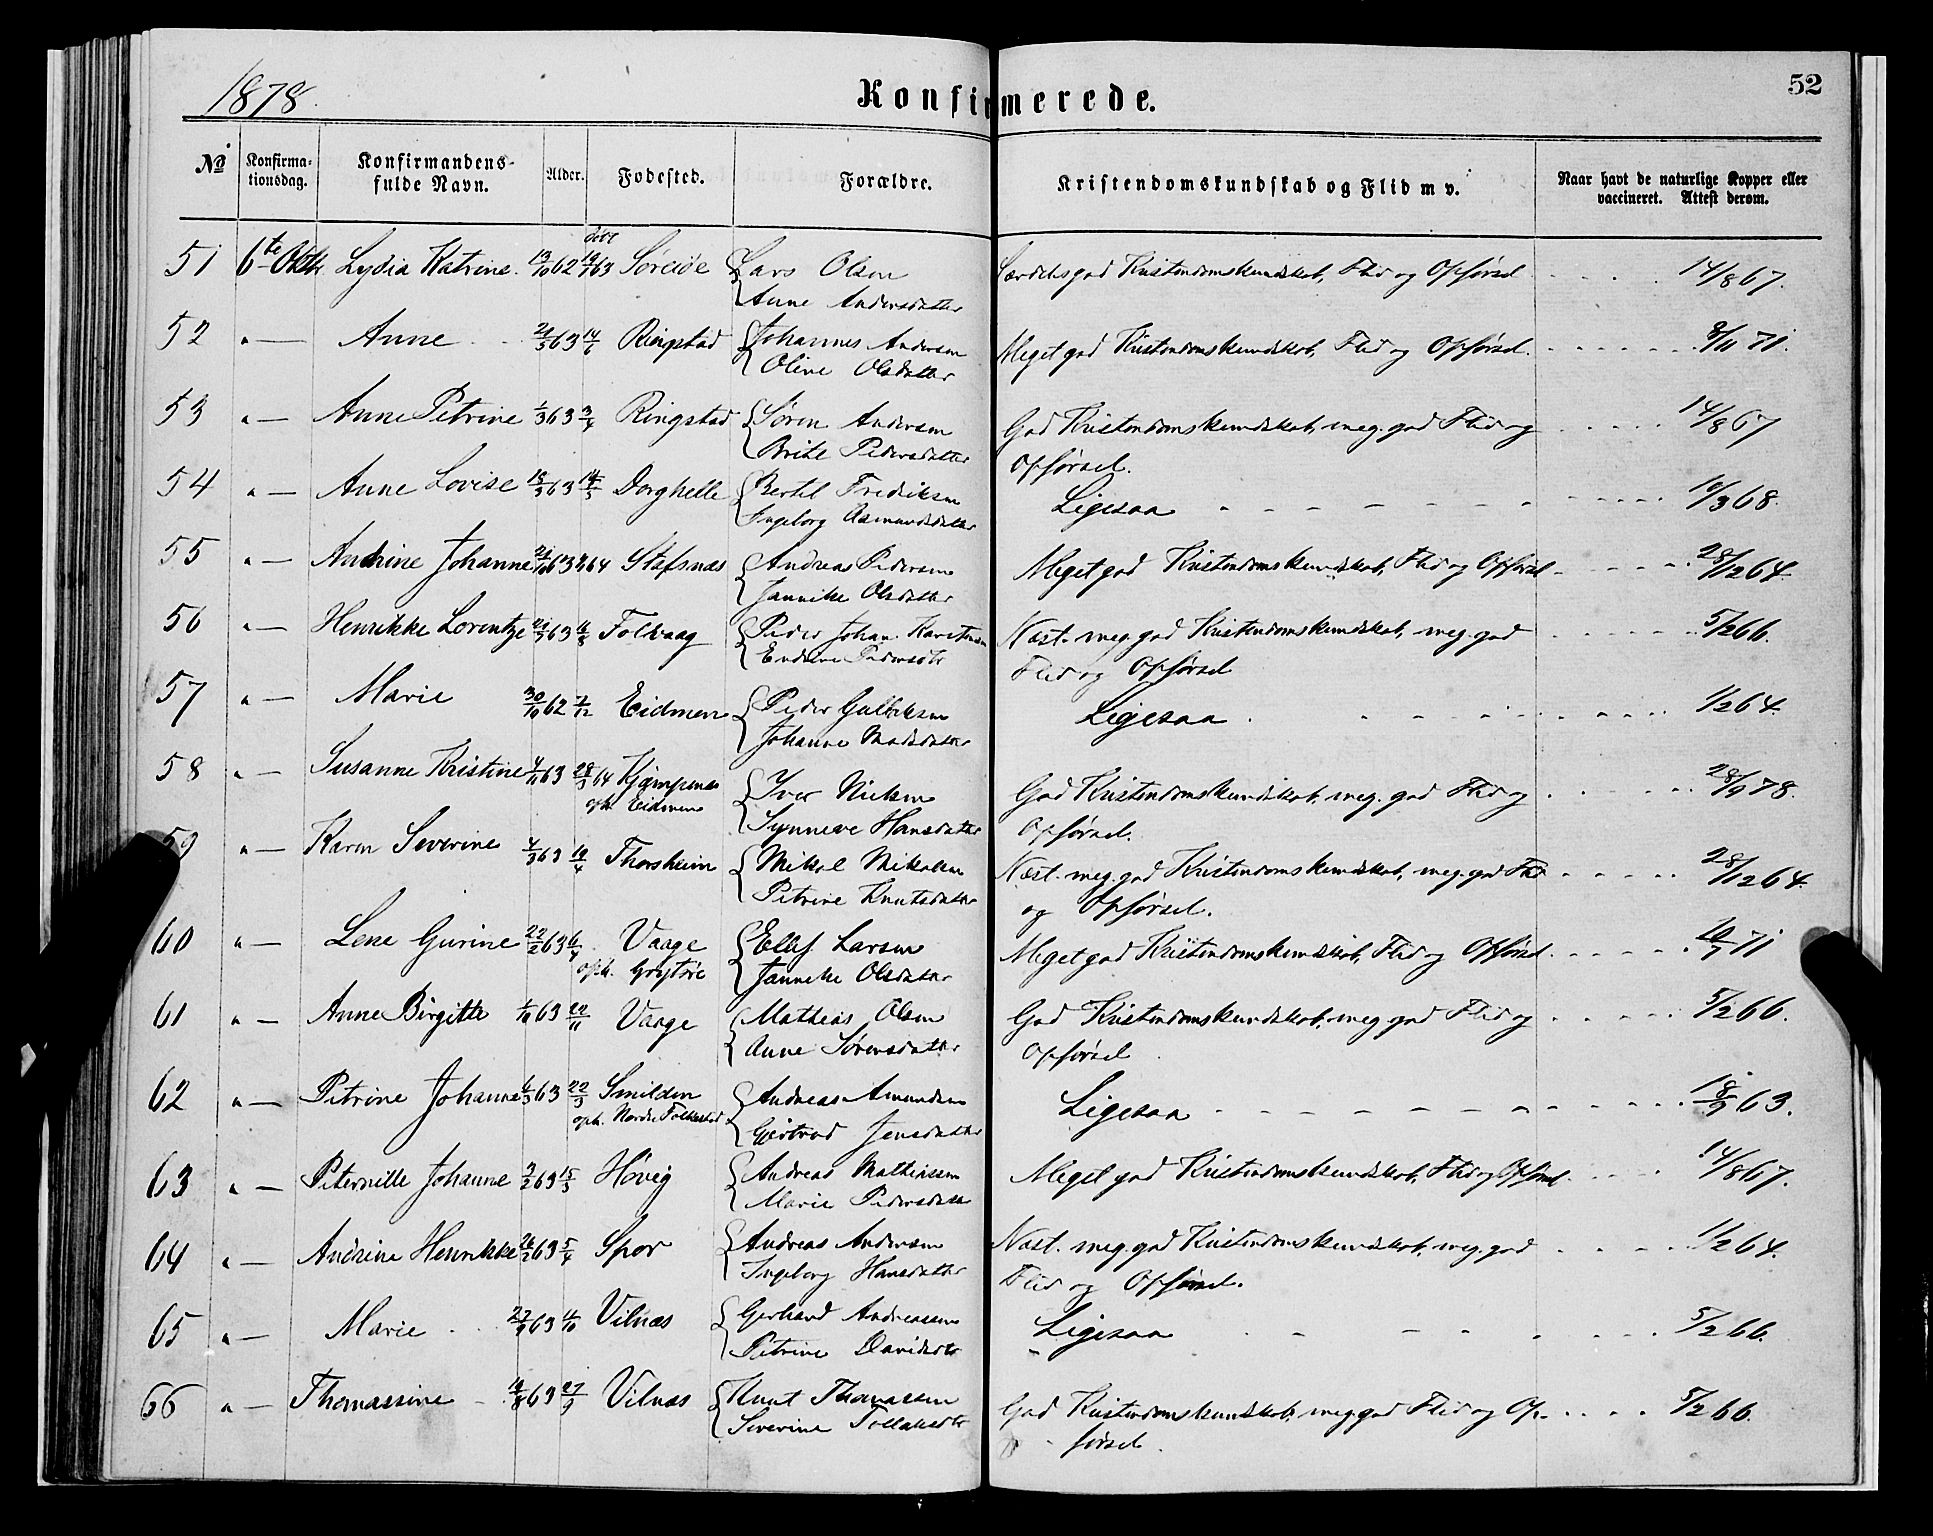 1878.
Konfirmerede.
52
No
Konfirma-
tionsdag.
Konfirmandens
fulde Navn.
Alder.
Fødested.
Forældre.
Kristendomskundskab og Flid m v.
Naar havt de naturlige Kopper eller
vaccineret. Attest derom.
51 6te Oktbr. Lydia Katrine 19/10 62 døbt 19/7 63 Lars Olsen Særdelsgod Kristendomskundskab, Flid og Opførsel 14/8 67.
Anne Andersdatter
52 " — Anne 63 14/6 Ringstad Johannes Andersen Meget god Kristendomskundskab, Flid og Opførsel. 9/11 71.
Oline Olsdatter
53 " — Anne Petrine 1/3 63 3/4 Ringstad Søren Andersen God Kristendomskundskab, meg. god Flid og 14/8 67
Brite Pedersdatter Opførsel.
54 " — Anne Lovise 63 14/5 Dorghelle Bertel Fredriksen Ligesaa 10/3 68.
Ingeborg Asmundsdatter
55 " — Andrine Johanne 63 64 Stafsnæs Andreas Pedersen Meget god Kristendomskundskab, Flid og Opførsel 28/12 64
Jannike Olsdatter
56 " — Henrikke Lorentze 63 Folvaag Peder Johan Karstensen Næst. meg. god Kristendomskundskab, meg. god 5/2 66.
Pedersdtr Flid og Opførsel
57 " — Marie 30/10 62 7/12 Eidmen Peder Gulleksen Ligesaa 1/2 64.
Johanne Madsdatter
58 " — Susanne Kristine 4/11 63 28/3 64 Kjempenes Iver Nielsen God Kristendomskundskab, meg. god Flid og 28/9 78.
oph. Eidmen Synneve Hansdatter Opførsel.
59 " — Karen Severine 4/3 63 Thorsheim Mikal Mikalsen Næst. meg. god Kristendomskundskab, meg. god Flid 28/12 64.
Petrine Knutsdatter og Opførsel.
60 " — Lene Gurine 22/2 63 6/4 Vaage Ellef Larsen Meget god Kristendomskundskab, Flid og Opførsel. 10/7 71
oph. Grytøie Janneke Olsdatter
61 " — Anne Birgitte 1/10 63 22/11 Vaage Mathias Olsen God Kristendomskundskab, meg. god Flid og 5/2 66.
Anne Sørensdatter Opførsel
62 " — Petrine Johanne 63 22/3 Smilden Andreas Amundsen Ligesaa 18/9 63.
oph. Nordre Folkestad Gjertrud Jensdatter
63 " — Peternille Johanne 3/2 63 15/3 Høvig Andreas Mathiassen Meget god Kristendomskundskab, Flid og Opførsel 14/8 67.
Marie Pedersdatter
64 " — Andrine Henrikke 26/2 63 5/4 Spor Andreas Andersen Næst. meg. god Kristendomskundskab, meg. god 1/2 64.
Ingeborg Hansdatter Flid og Opførsel.
65 " — Marie 27/9 63 11/10 Vilnæs Gerhard Andreassen Ligesaa 5/2 66.
Petrine Davidsdtr
66 " — Thomassine 63 27/9 Vilnæs Knut Thomassen God Kristendomskundskab, meg. god Flid og Op- 5/2 66.
Severine Tollaksdtr førsel.